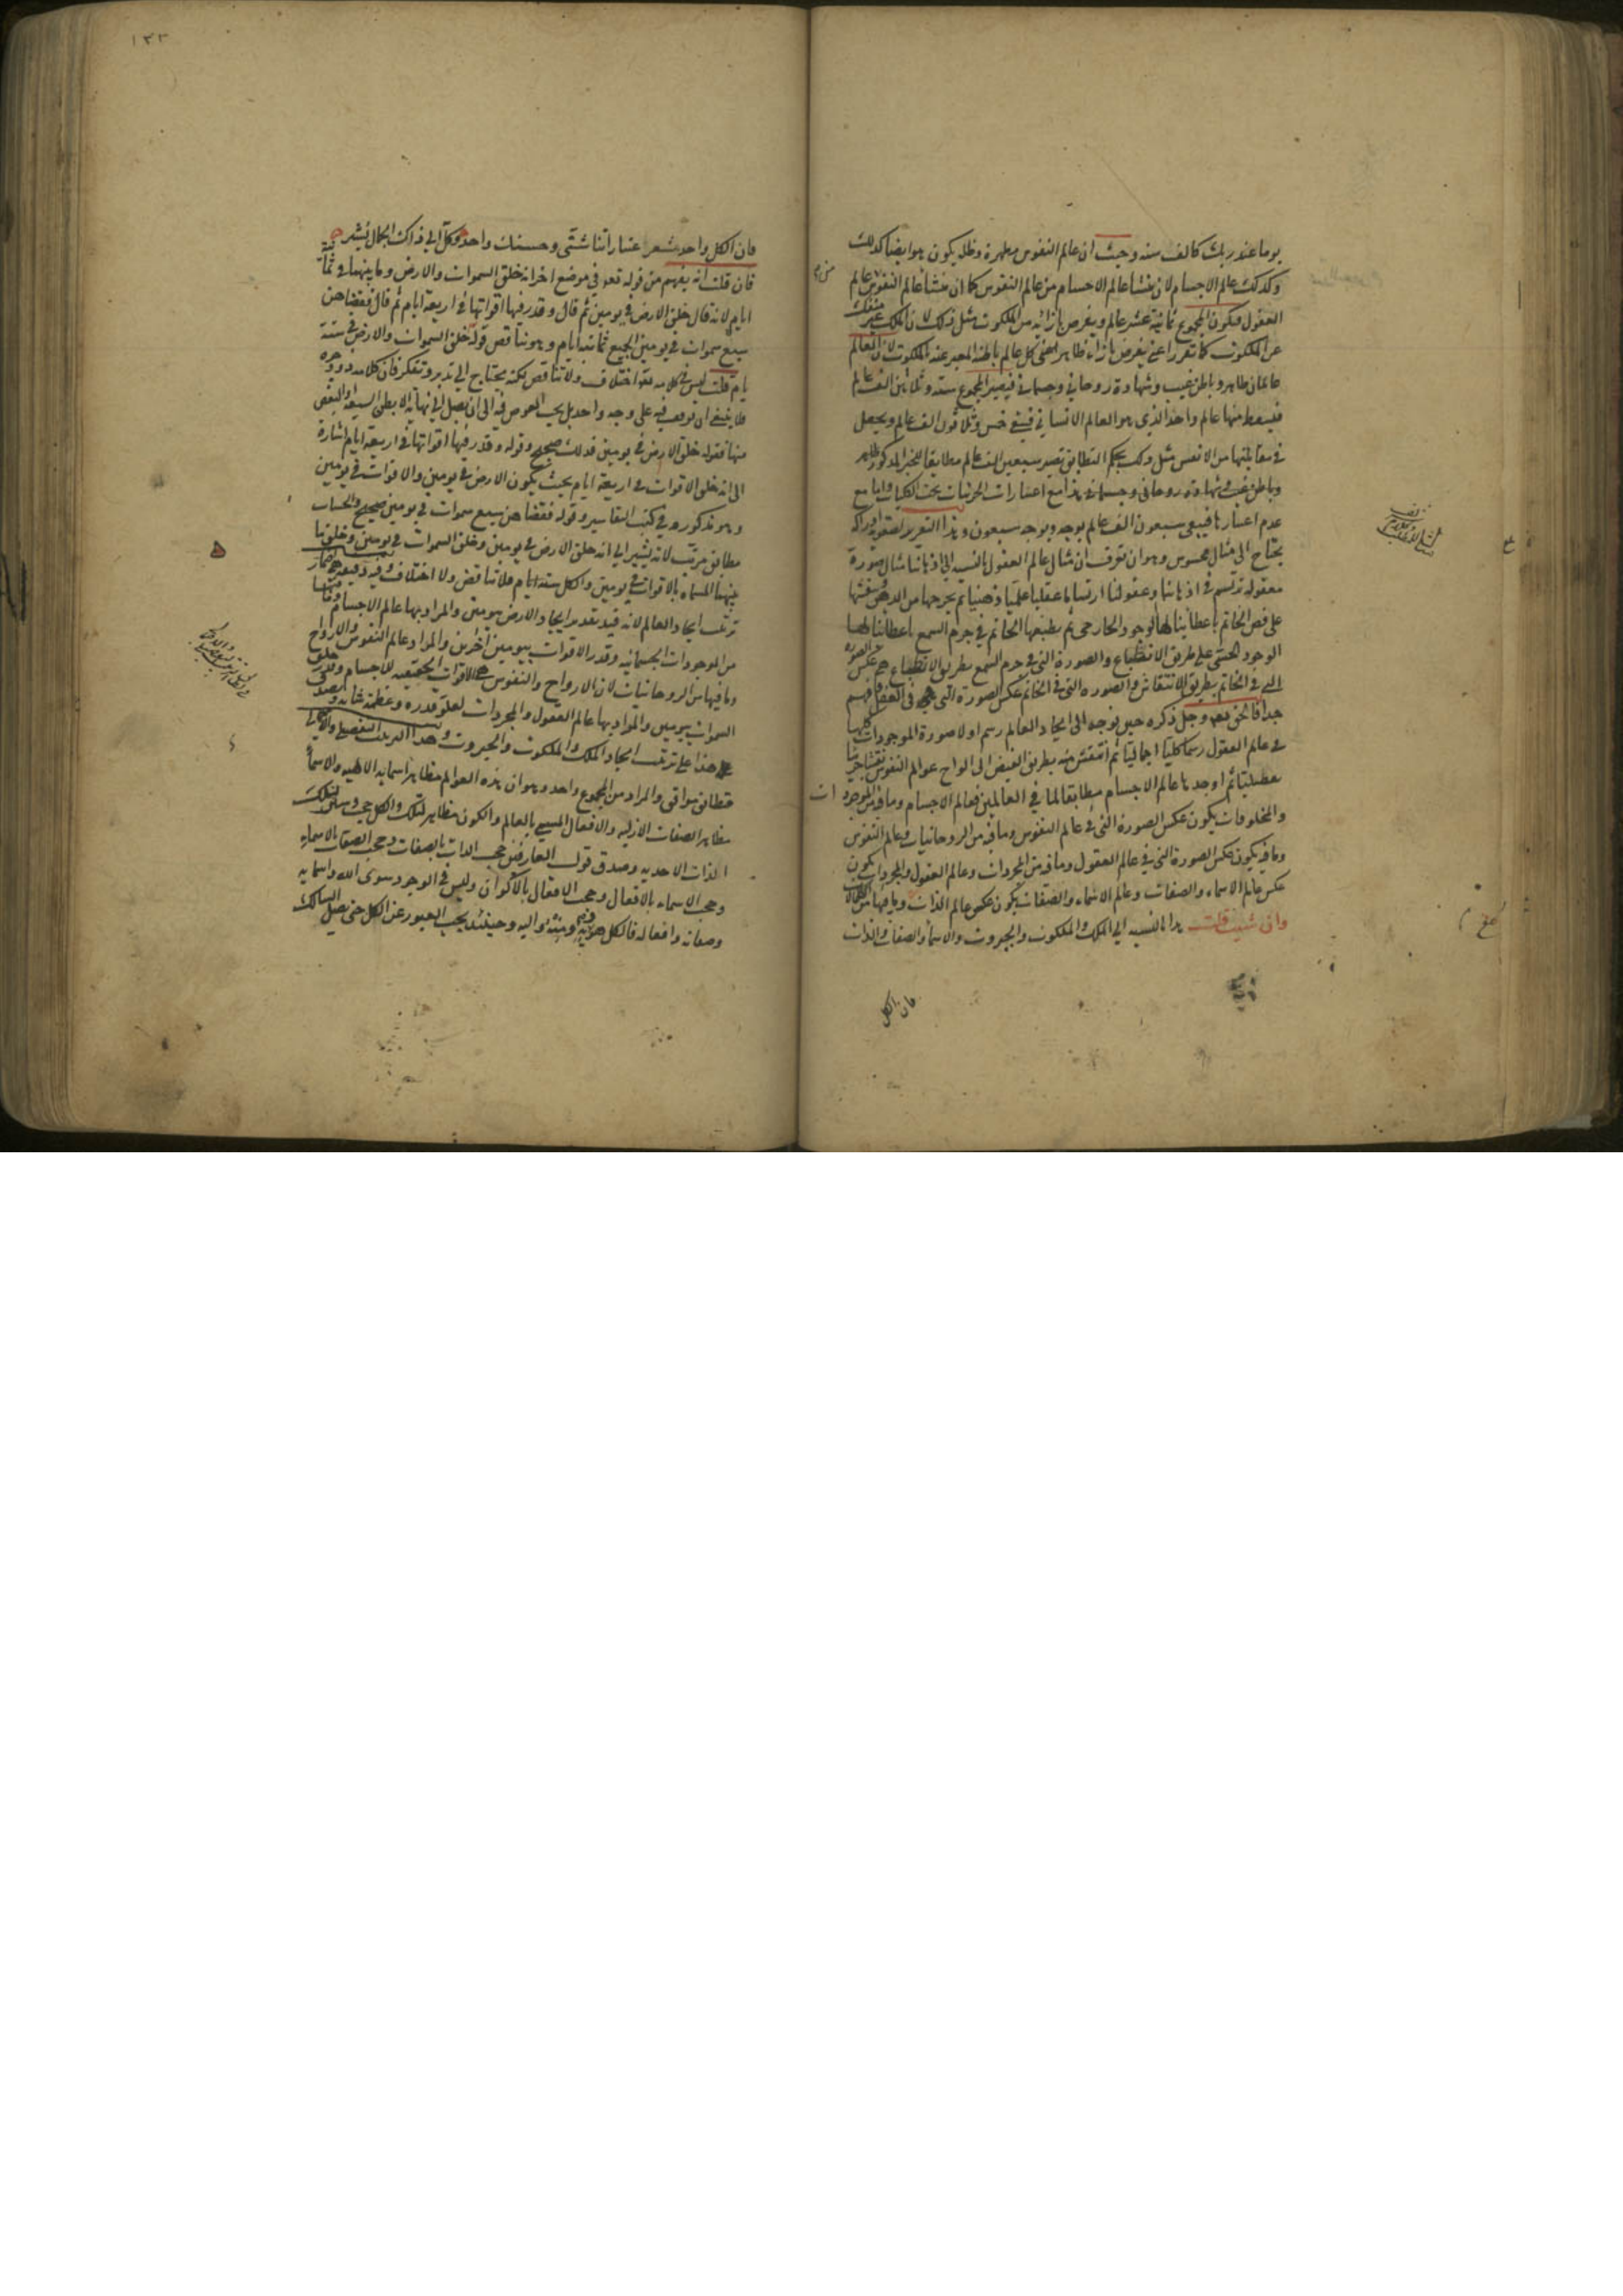 يوما عند ربك كالف سنه وحيث ان عالم النفوس مظهره وظله يكون هو ايضا كذلك
وكذلك عالم الاجسام لان منشأ عالم الاجسام من عالم النفوس كما ان منشأ عالم النفوس عالم
العقول فيكون المجموع ثمانية عشر عالم ويفرض بازائه من الملكوت مثل ذلك لان الملك غير منفك
عن الملكوت كما تقرر اعنى يفرض بازاء ظاهر اعنى كل عالم باطنه المعبر عنه بالملكوت لان العالم
عالمان ظاهر وباطن غيب وشهادة روحاني وجسماني فيصير المجموع ستة وثلاثين الف عالم
فيسقط منها عالم واحد الذى هو العالم الانساني فيبقى خمس وثلاثون الف عالم ويجعل
في مقابلتها من الانفس مثل ذلك بحكم التطابق تصير سبعين الف عالم مطابقا للخبر المذكور ظاهر
وباطن غيب وشهادة روحانى وجسمانى هذا مع اعتبارات الجزئيات تحت الكليات واما مع
عدم اعتبارها فيبقى سبعون الف عالم بوجه وبوجه سبعون وهذا التقرير لصعوبة ادراكه
يحتاج الى مثال محسوس وهو ان تعرف ان مثال عالم العقول بالنسبة الى اذهاننا مثال صورة
معقولة ترتسم في اذهاننا وعقولنا ارتساما عقليا علميا ذهنيا ثم نخرجها من الذهن وننقشها
على فص الخاتم باعطائنا لها الوجود الخارجى ثم نطبعها الخاتم في جرم الشمع باعطائنا لها
الوجود الحسى على طريق الانطباع والصورة التى في جرم الشمع بطريق الانطباع هى عكس الصورة
التى في الخاتم بطريق الانتقاش والصورة التى في الخاتم عكس الصورة التى هى في العقل فافهم
جدا فالحق تعالى وجل ذكره حين توجه الى ايجاد العالم رسم اولا صورة الموجودات كلها
في عالم العقول رسما كليا اجماليا ثم انتقش منه بطريق الفيض الى الواح عوالم النفوس نقشا جزئيا
تفصيليا ثم اوجدها عالم الاجسام مطابقا لما في العالمين فعالم الاجسام وما فيه من الموجودات
والمخلوقات يكون عكس الصورة التى في عالم النفوس وما فيه من الروحانيات وعالم النفوس
وما فيه يكون عكس الصورة التى في عالم العقول وما فيه من المجردات وعالم العقول والمجردات يكون
عكس عالم الاسماء والصفات وعالم الاسماء والصفات يكون عكس عالم الذات وما فيها من الكمالات
وان شئت قلت هذا بالنسبة الى الملك والملكوت والجبروت والاسماء والصفات والذات
فان الكل
١٣٣
فان الكل واحد شعر عباراتنا شتى وحسنك واحد وكل الى ذاك الجمال يشير
فان قلت انه يفهم من قوله تعالى في موضع اخر انه خلق السموات والارض وما بينهما في ثمانية
ايام لانه قال خلق الارض في يومين ثم قال وقدر فيها اقواتها في اربعة ايام ثم قال فقضاهن
سبع سموات في يومين الجميع ثمانية ايام وهو يناقض قوله خلق السموات والارض في ستة
ايام قلت ليس في كلامه تعالى اختلاف ولا تناقض لكنه يحتاج الى تدبر وتفكر فان كلامه ذو وجوه
فلا ينبغى ان يوقف فيه على وجه واحد بل يجب الخوض فيه الى ان يصل الى نهاية الابطن السبعة او البعض
منها فقوله خلق الارض في يومين فذلك صحيح وقوله وقدر فيها اقواتها في اربعة ايام اشارة
الى انه خلق الاقوات في اربعة ايام بحيث يكون الارض في يومين والاقوات في يومين
وهو مذكور في كتب التفاسير وقوله فقضاهن سبع سموات في يومين صحيح والحساب
مطابق مرتب لانه يشير الى انه خلق الارض في يومين وخلق السموات في يومين وخلق ما
بينهما المسماة بالاقوات في يومين والكل ستة ايام فلا تناقض ولا اختلاف وفيه دقيقة
ترتيب ايجاد العالم لانه قيد تقدم ايجاد الارض بيومين والمراد بها عالم الاجسام
من الموجودات الجسمانية وقدر الاقوات بيومين اخرين والمراد عالم النفوس والارواح
وما فيها من الروحانيات لان الارواح والنفوس هى الاقوات الحقيقية للاجسام وقدر خلق
السموات بيومين والمراد بها عالم العقول والمجردات لعلو قدره وعظمة شانه
هذا على ترتيب ايجاد الملك والملكوت والجبروت وهذا الترتيب التفصيلى والاجمالى
متطابق متوافق والمراد من المجموع واحد وهو ان هذه العوالم مظاهر اسمايه الالهيه والاسماء
مظاهر الصفات الازليه والافعال المسمى بالعالم والكون مظاهر لتلك والكل حجب وستائر لتلك
الذات الاحديه وصدق قول العارفين حجب الذات بالصفات وحجب الصفات بالاسماء
وحجب الاسماء بالافعال وحجب الافعال بالاكوان وليس في الوجود سوى الله واسمايه
وصفاته وافعاله فالكل هو وبه ومنه واليه وحينئذ يجب العبور عن الكل حتى يصل السالك